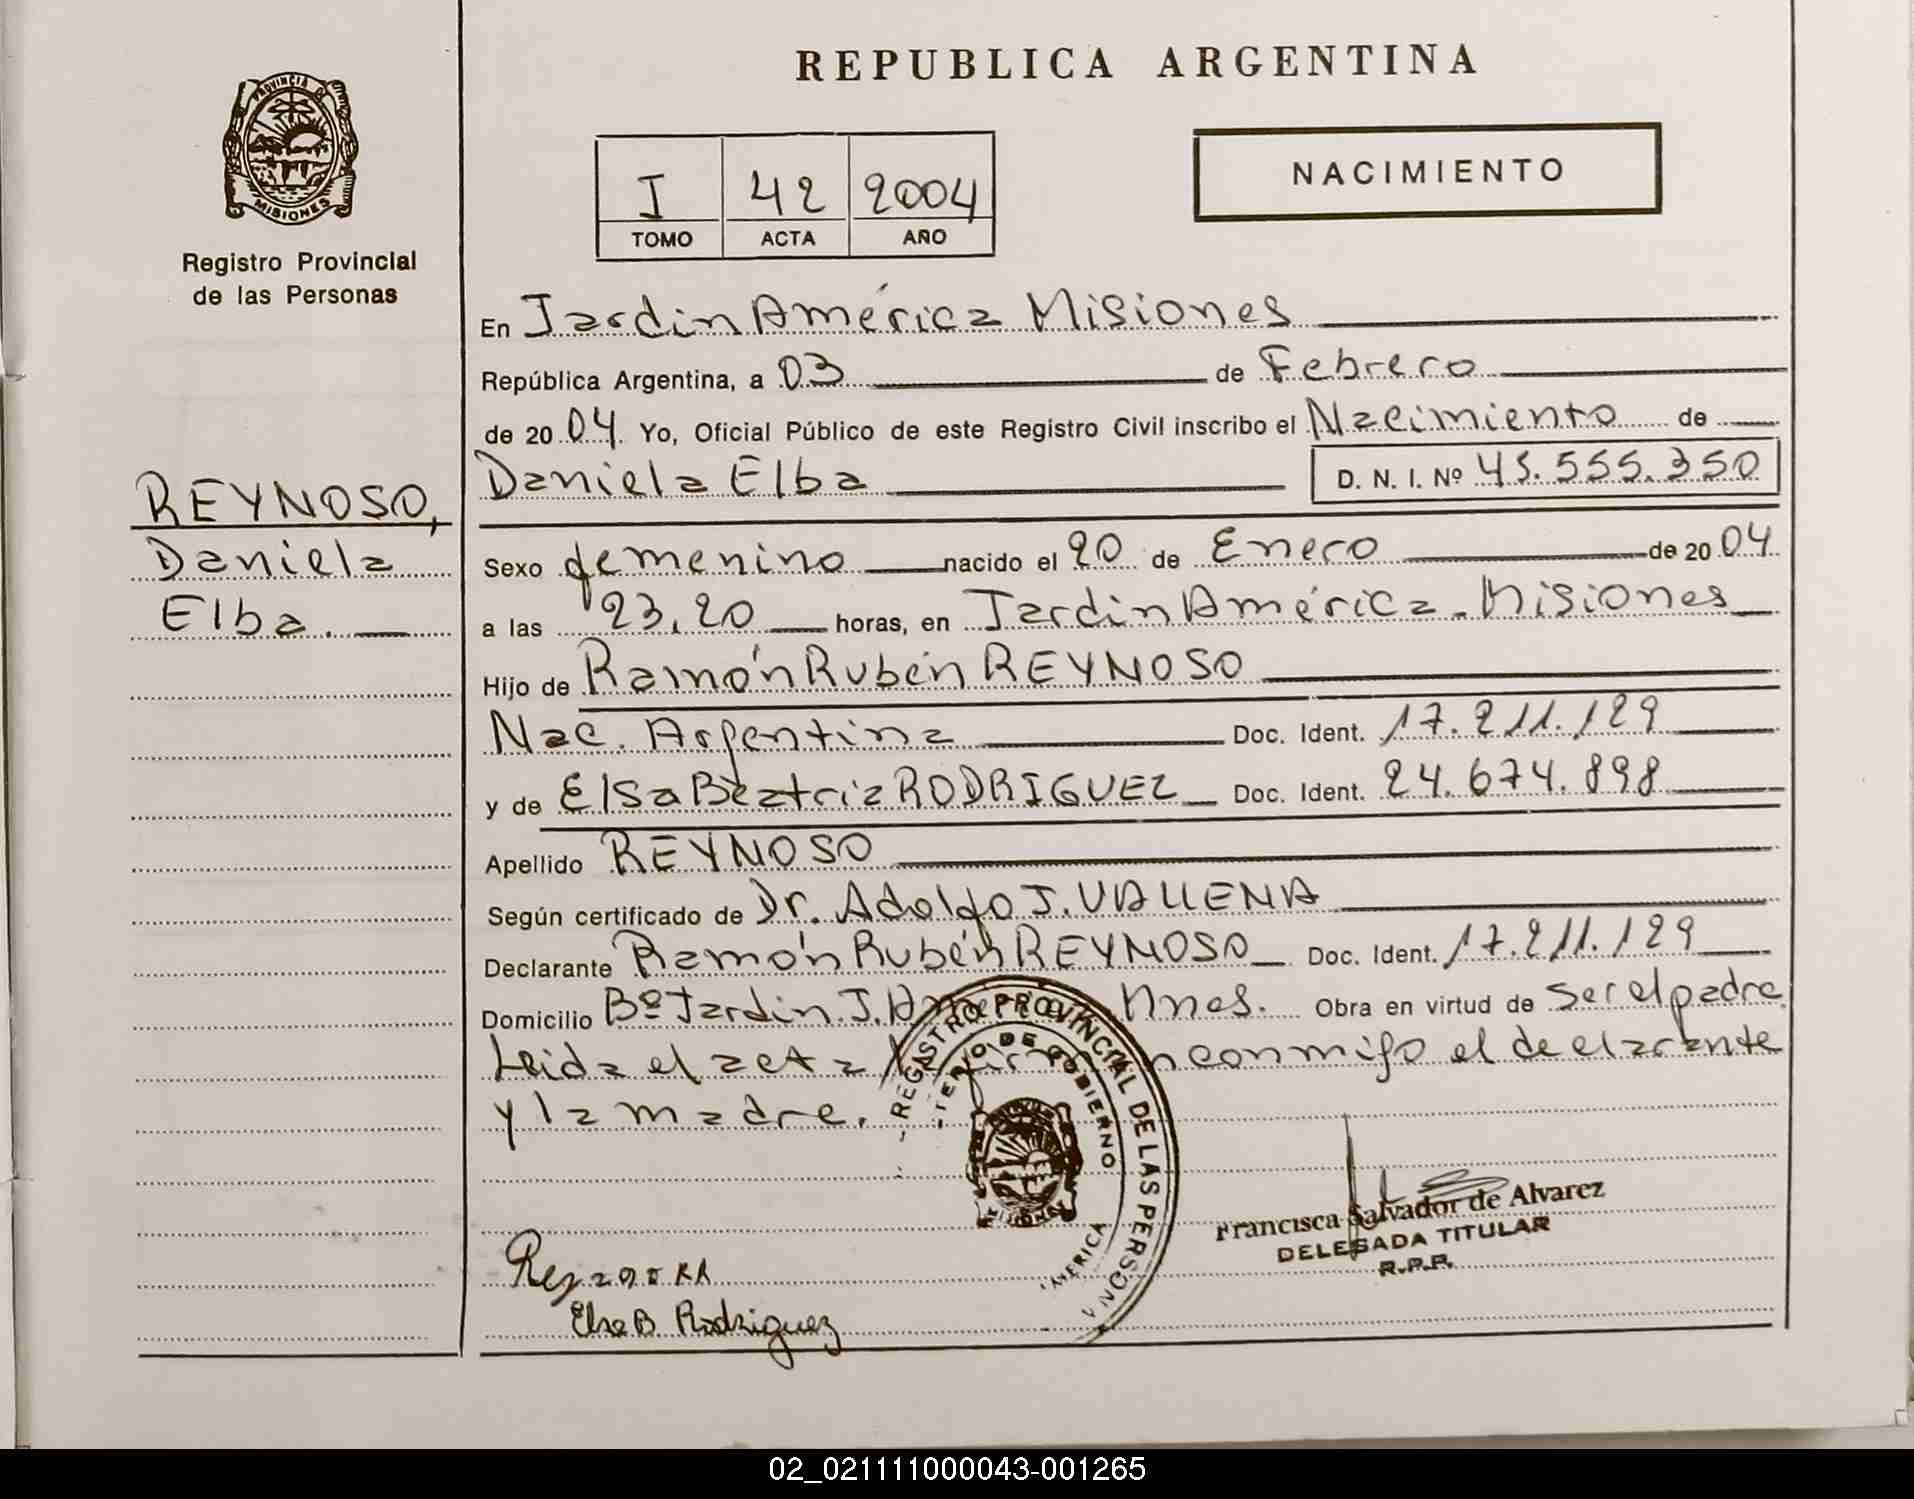 REPUBLICA ARGENTINA
PROVINCIA DE
MISIONES
Registro Provincial
de las Personas
I 42 2004
TOMO ACTA AÑO
NACIMIENTO
En Jardin América Misiones
República Argentina, a 03 de Febrero
de 2004 Yo, Oficial Público de este Registro Civil inscribo el Nacimiento de
Daniela Elba D. N. I. Nº 45.555.350
REYNOSO,
Daniela
Elba.
Sexo femenino nacido el 20 de Enero de 2004
a las 23,20 horas, en Jardin América - Misiones
Hijo de Ramón Rubén REYNOSO
Nac. Argentina Doc. Ident. 17.211.129
y de Elsa Beatriz RODRIGUEZ Doc. Ident. 24.674.898
Apellido REYNOSO
Según certificado de Dr. Adolfo J.
Declarante Ramón Rubén REYNOSO Doc. Ident. 17.211.129
Domicilio Bº Jardin. J. Mnes. Obra en virtud de ser el padre
Leida el acta conmigo el declarante
y la madre.
REGISTRO PROVINCIAL DE LAS PERSONA
DE GOBIERNO
MISIONES
MERICA
Francisca Salvador de Alvarez
DELEGADA TITULAR
R.P.P.
Elsa B. Rodriguez
02_021111000043-001265